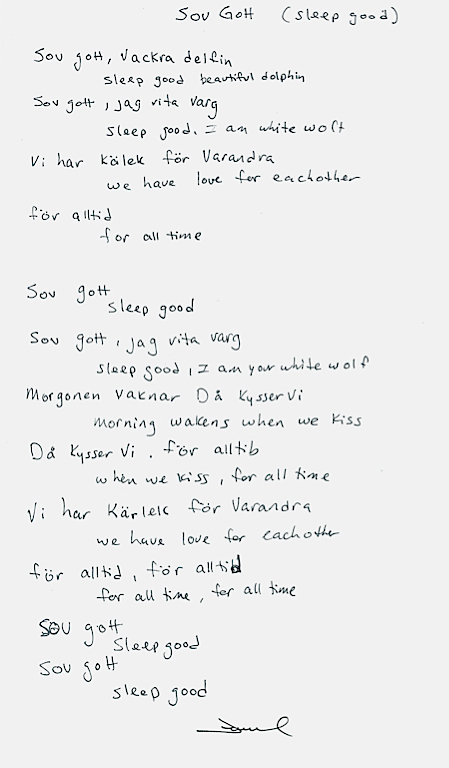 Sov Gott (sleep good)
Sov gott, vackra delfin
sleep good beautiful dolphin
Sov gott, jag vita varg
sleep good. I am white wolf
Vi har Kälek för Varandra
we have love for eachother
för alltid
for all time
Sov gott
sleep good
Sov gott, jag vita varg
sleep good, I am your white wolf
Morgonen Vaknar Då Kysser Vi
morning wakens when we kiss
Då Kysser Vi. för alltib
when we kiss, for all time
Vi har Kärlek för Varandra
we have love for eachother
för alltid, för alltid
for all time, for all time
Sov gott
Sleep good
Sov gott
sleep good